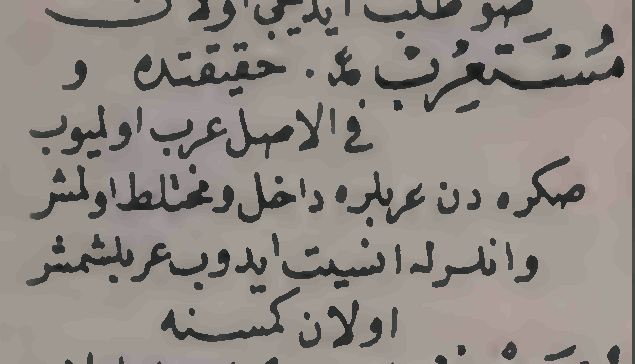 صو طلب ايديجى اولان
مُسْتَعْرِبْ ع. حقيقتده و
فى الاصل عرب اولميوب
صكره دن عربلره داخل ومختلط اولمش
وانلرله انسيت ايدوب عربلشمش
اولان كمسنه